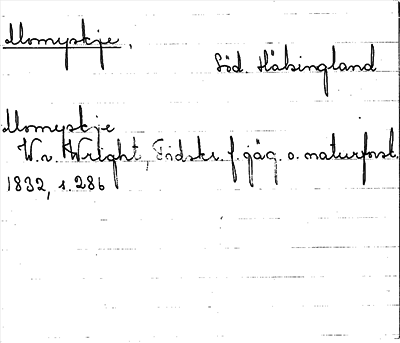 Momyskje.
Söd. Hälsingland
Momyskje
W. v. Wright, Tidskr. f. jäg. o. naturforsk.
1832, s. 286